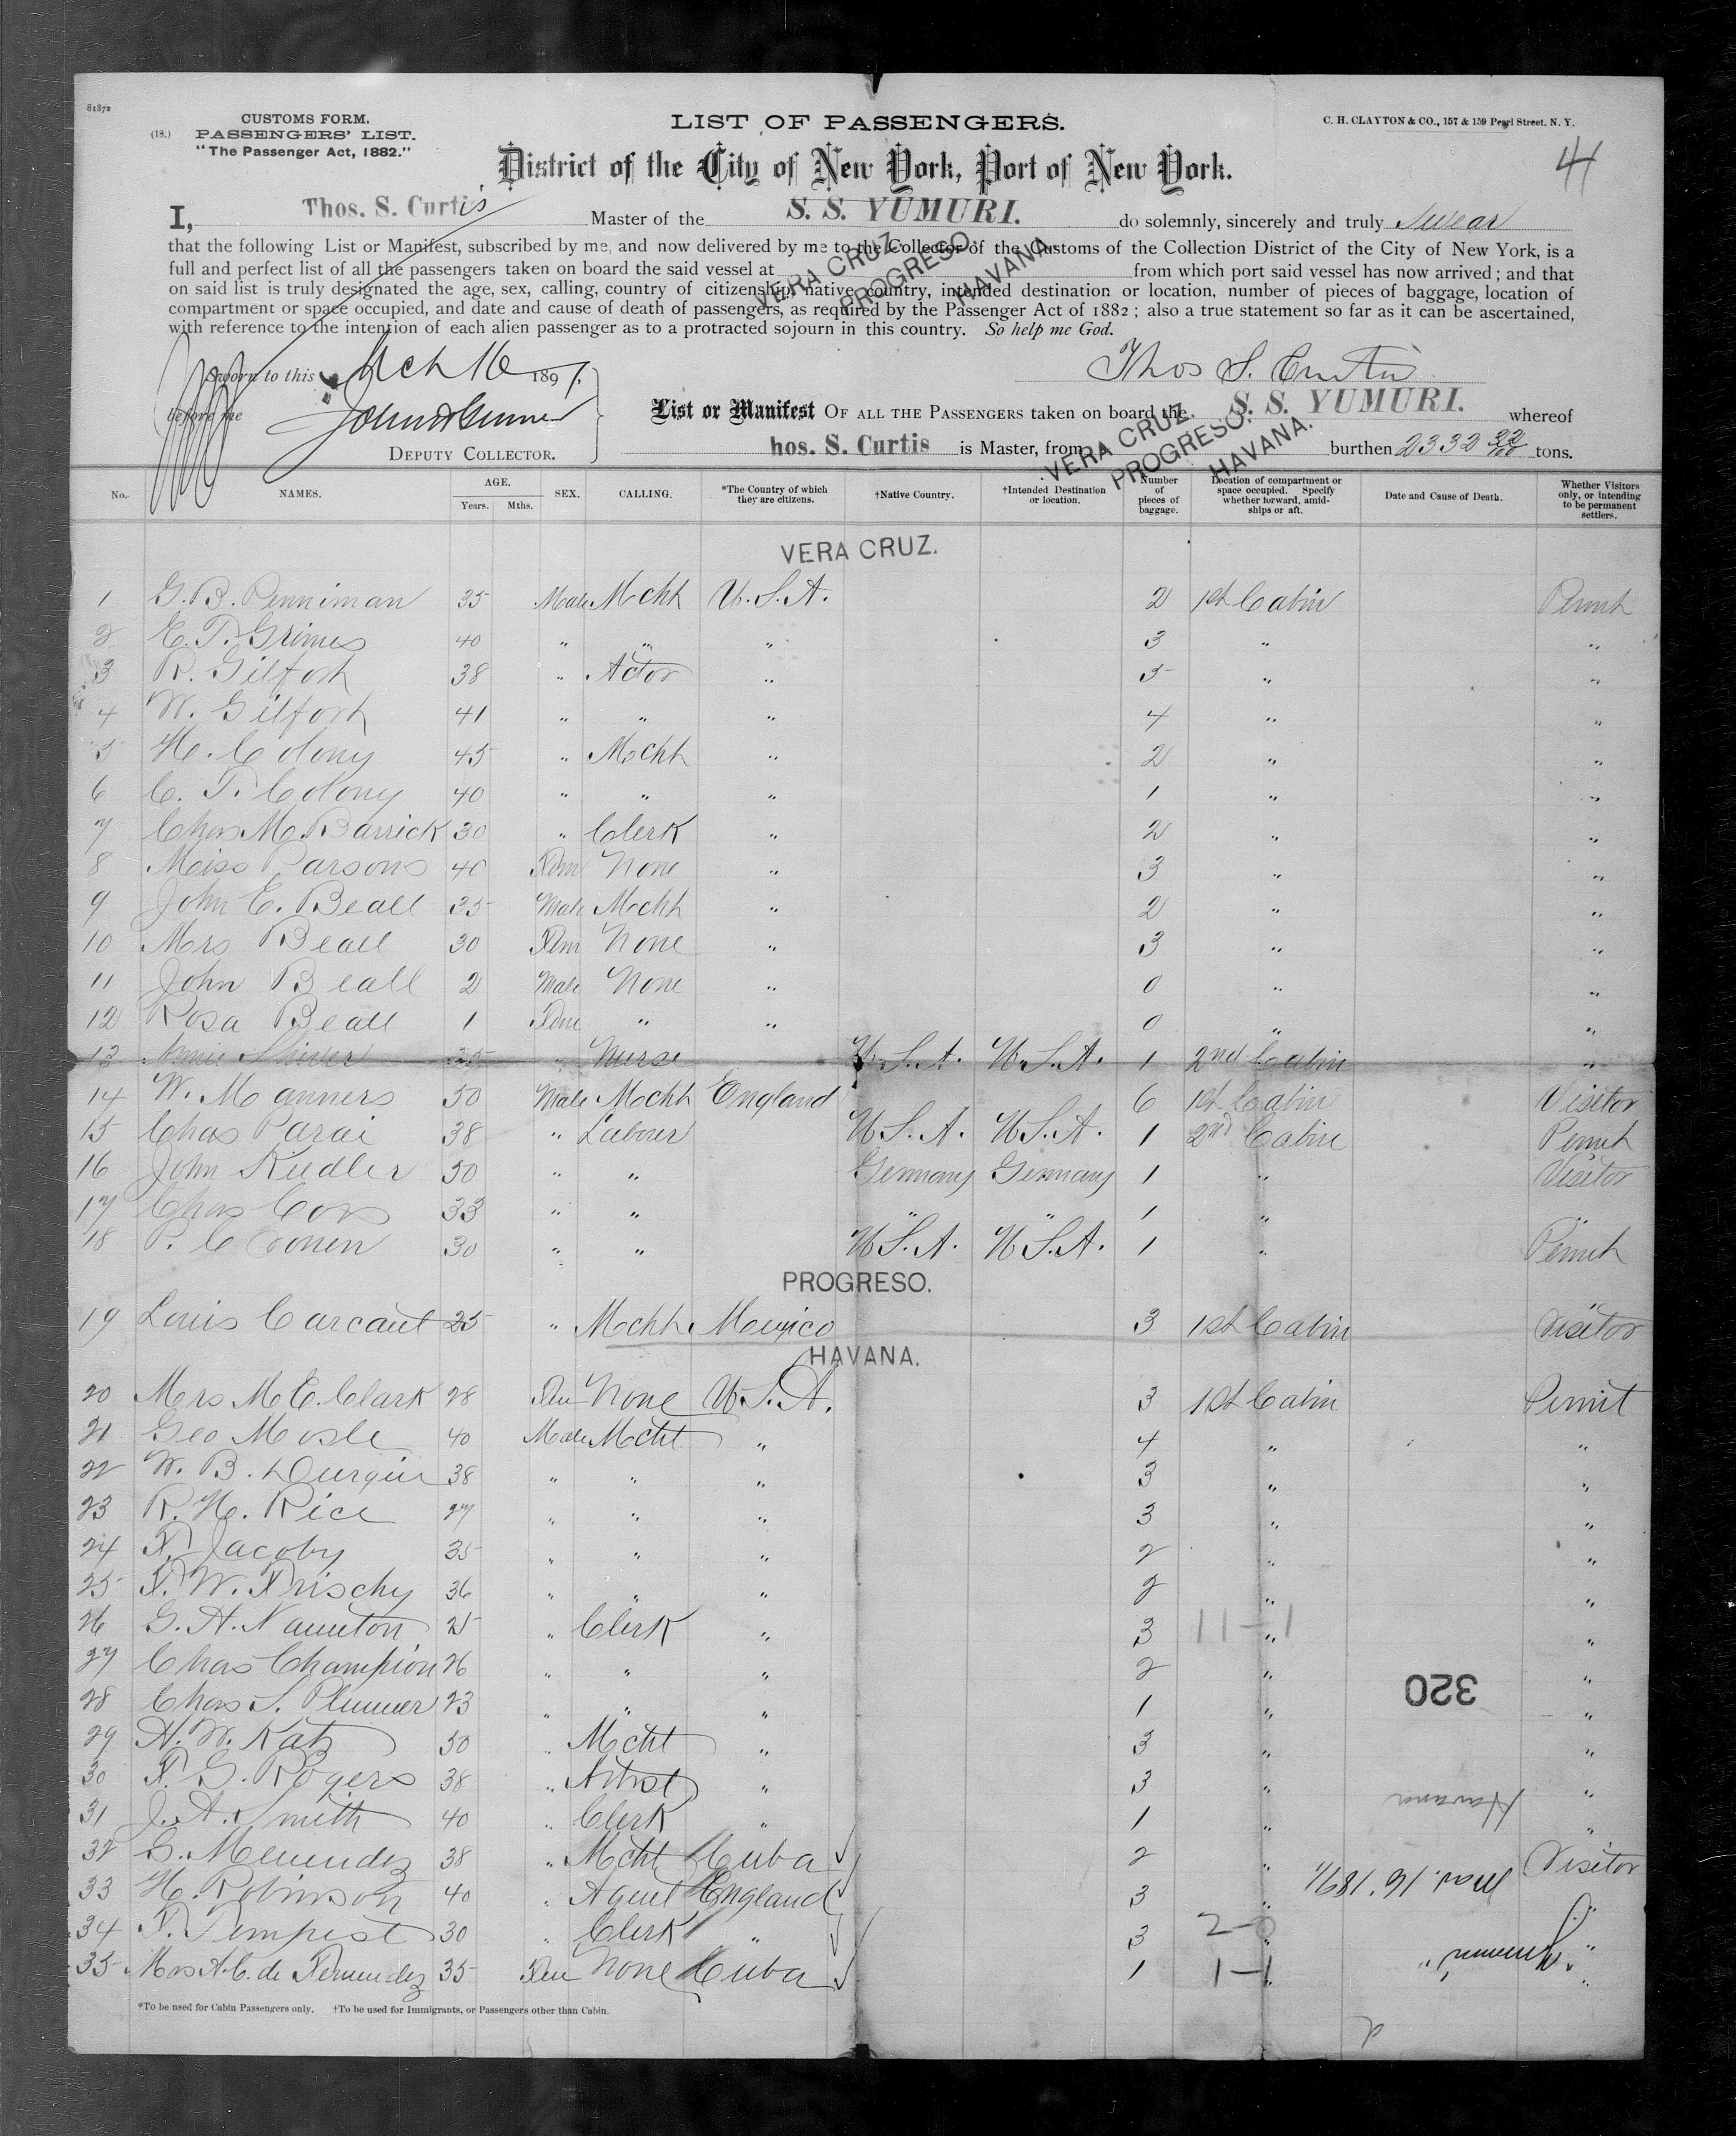 81872
CUSTOMS FORM.
(18.) PASSENGERS' LIST.
"The Passenger Act, 1882."
LIST OF PASSENGERS.
C. H. CLAYTON & CO., 157 & 159 Pearl Street, N. Y.
41
District of the City of New York, Port of New York.
I, Thos. S. Curtis Master of the S. S. YUMURI. do solemnly, sincerely and truly swear
that the following List or Manifest, subscribed by me, and now delivered by me to the Collector of the Customs of the Collection District of the City of New York, is a
full and perfect list of all the passengers taken on board the said vessel at VERA CRUZ. PROGRESO. HAVANA. from which port said vessel has now arrived; and that
on said list is truly designated the age, sex, calling, country of citizenship, native country, intended destination or location, number of pieces of baggage, location of
compartment or space occupied, and date and cause of death of passengers, as required by the Passenger Act of 1882; also a true statement so far as it can be ascertained,
with reference to the intention of each alien passenger as to a protracted sojourn in this country. So help me God.
Sworn to this Mch 16 1897.
Thos S. Curtis
before me
DEPUTY COLLECTOR.
List or Manifest OF ALL THE PASSENGERS taken on board the S. S. YUMURI. whereof
hos. S. Curtis is Master, from VERA CRUZ. PROGRESO. HAVANA. burthen 2332 32/100 tons.
No. NAMES. AGE. Years. Mths. SEX. CALLING. *The Country of which they are citizens. †Native Country. †Intended Destination or location. Number of pieces of baggage. Location of compartment or space occupied. Specify whether forward, amidships or aft. Date and Cause of Death. Whether Visitors only, or intending to be permanent settlers.
VERA CRUZ.
1 G. B. Penniman 35 Male Mcht U.S.A. 2 1st Cabin Permt
2 E. T. Grimes 40 " " " 3 " "
3 R. Gilfort 38 " Actor " 5 " "
4 W. Gilfort 41 " " " 4 " "
5 H. Colony 45 " Mcht " 2 " "
6 C. T. Colony 40 " " " 1 " "
7 Chas M. Barrick 30 " Clerk " 2 " "
8 Miss Parsons 40 Fem None " 3 " "
9 John E. Beall 35 Male Mcht " 2 " "
10 Mrs Beall 30 Fem None " 3 " "
11 John Beall 2 Male None " 0 " "
12 Rosa Beall 1 Fem " " 0 " "
13 Annie 35 " Nurse U.S.A. U.S.A. 1 2nd Cabin "
14 W. Manners 50 Male Mcht England 6 1st Cabin Visitor
15 Chas Parai 38 " Laborer U.S.A. U.S.A. 1 2nd Cabin Permt
16 John Kudler 50 " " Germany Germany 1 " Visitor
17 Chas Cors 33 " " " " 1 " "
18 P. Cronen 30 " " U.S.A. U.S.A. 1 " Permt
PROGRESO.
19 Louis Carcaut 25 " Mcht Mexico 3 1st Cabin Visitor
HAVANA.
20 Mrs M. E. Clark 28 Fem None U.S.A. 3 1st Cabin Permt
21 Geo Mosle 40 Male Mcht " 4 " "
22 W. B. Durgin 38 " " " 3 " "
23 R. H. Rice 27 " " " 3 " "
24 F. Jacoby 35 " " " 2 " "
25 F. W. Frischy 36 " " " 2 " "
26 G. H. Naunton 25 " Clerk " 3 11-1 " "
27 Chas Champion 26 " " " 2 " "
28 Chas S. Plummer 23 " " " 1 " "
320
29 H. W. Katz 50 " Mcht " 3 " "
30 F. G. Rogers 38 " Artist " 3 " "
31 J. A. Smith 40 " Clerk " 1 " "
Havana
32 G. Menendez 38 " Mcht Cuba 2 " Visitor
33 H. Robinson 40 " Agent England 3 " "
Mar. 16 1897
34 F. Tempest 30 " Clerk " 3 2-0 " "
35 Mrs A. C. de Fernendez 35 Fem None Cuba 1 1-1 " "
Yumuri
*To be used for Cabin Passengers only. †To be used for Immigrants, or Passengers other than Cabin.